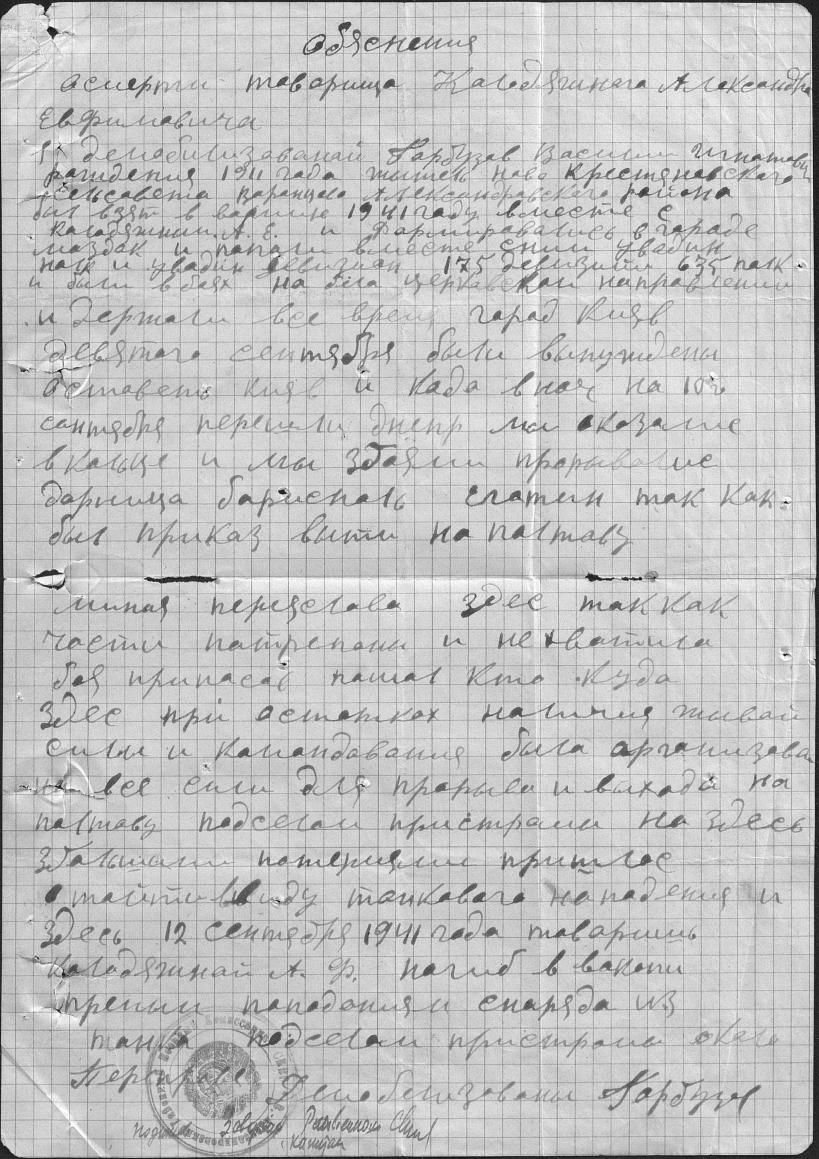 обяснения
осмерти товарища Калодяжнава Александра
Евфимовича
Я демобилизованай Гарбузов Василий Игнатович
раждения 1911 года житель ново Крестяновского
сельсовета Варанцово Александравского района
был взят в вармию 1941 году вместе с
Калодяжним А. Е. и формировались в гараде
маздак и попали вместе снии
175 девизии 635 полк
и были вбоях на бела церковскои направлении
и держали все время гарад Кияв
девятого сентября были вынуждены
оставеть Кияв и када вноч на 10е
сентября перешли днепр мы оказалис
в кольце и мы збоями прорывалис
дарница бариспаль так как
был приказ выти на палтаву
миная переяслава здес так как
части патрепаны и не хватила
боя припасов пашол кто куда
здес при остатках наличия жывай
силы и командавания была организова
на все силы для прорыва и выхода на
палтаву подселом пристрами на здесь
збольшими потерями пришлос
отойти ввиду танкового нападения и
здесь 12 сентября 1941 года товаришь
Калодяжнай А. Ф. погиб в вакопи
попадания снаряда из
танка подселом пристрами около
Демобелизованы Гарбузов